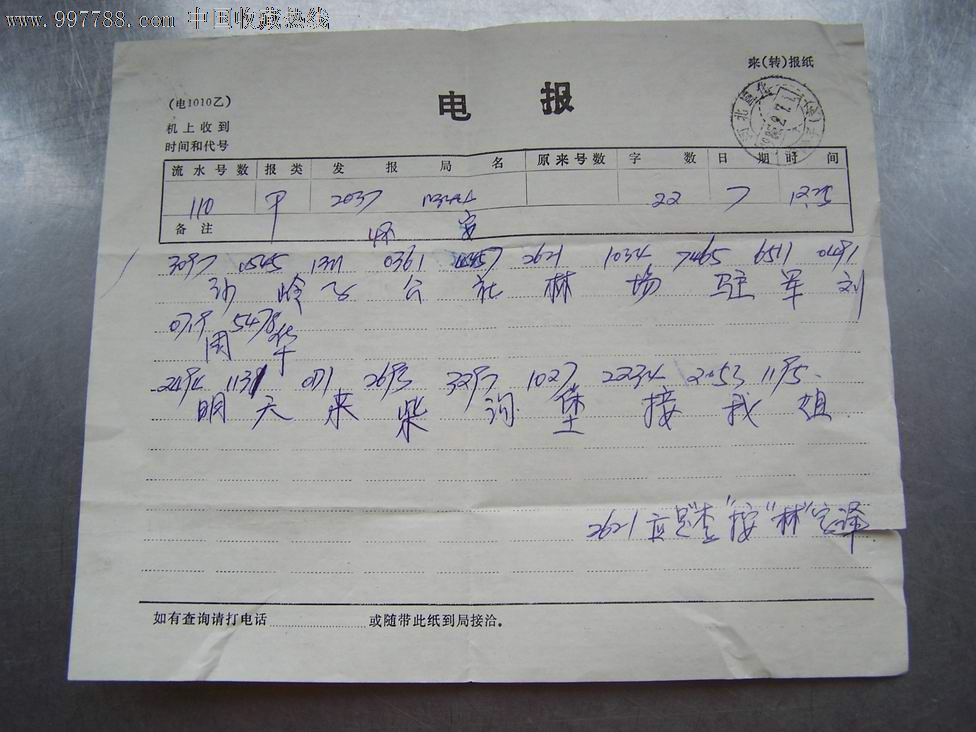 www.997788.com 中国收藏热线
来(转)报纸
(电1010乙)
电 报
机上收到
时间和代号
流水号数 报类 发报局名 原来号数 字数 日期 时间
110 2037 22 7 1225
备注 怀安
3097 0545 0361 2621 1034 7465 6511 0491
沙岭子公社林场驻军刘
0719 5478
国华
2494 1131 2693 3297 1027 2234 2053 1195
明天来柴沟堡接我姐
2621应是"查"按"林"字译
如有查询请打电话 或随带此纸到局接洽。